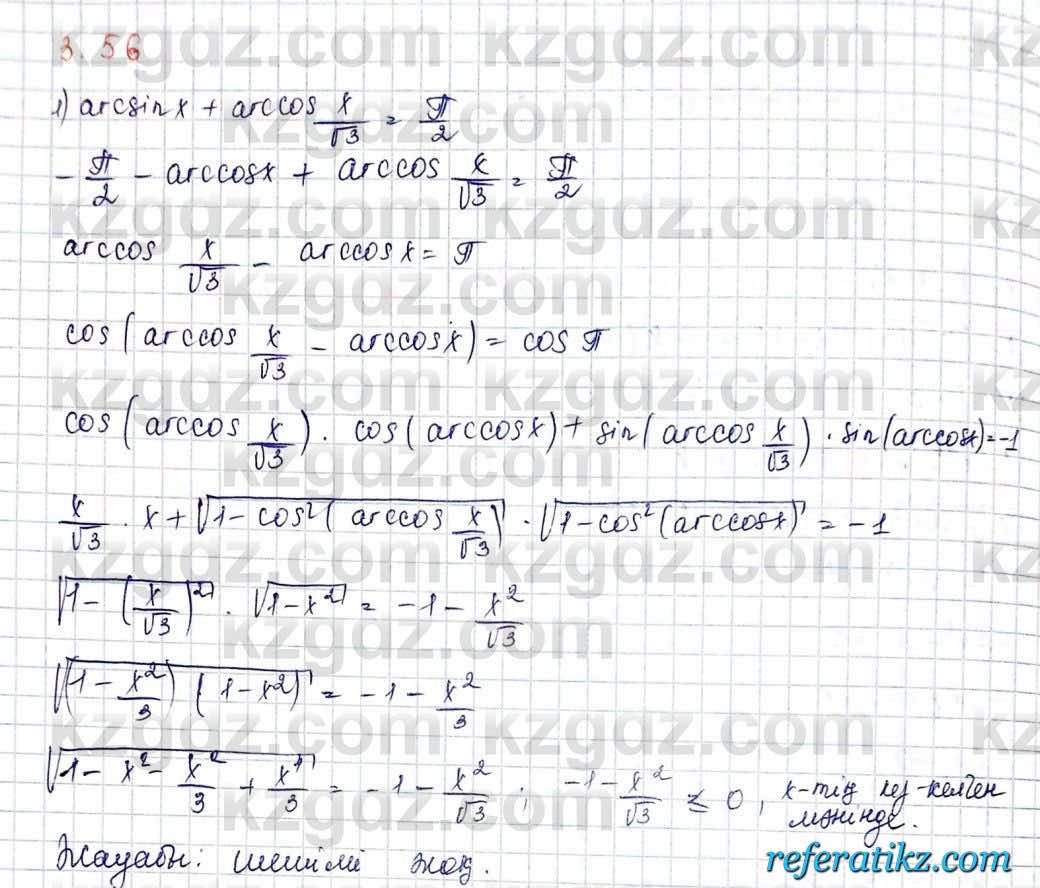 3.56
1) arcsin x + arccos x/√3 = π/2
- π/2 - arccos x + arccos x/√3 = π/2
arccos x/√3 - arccos x = π
cos(arccos x/√3 - arccos x) = cos π
cos(arccos x/√3) · cos(arccos x) + sin(arccos x/√3) · sin(arccos x) = -1
x/√3 · x + √(1 - cos²(arccos x/√3)) · √(1 - cos²(arccos x)) = -1
√(1 - (x/√3)²) · √(1 - x²) = -1 - x²/√3
√((1 - x²/3)(1 - x²)) = -1 - x²/3
√(1 - x² - x²/3 + x⁴/3) = -1 - x²/√3 ; -1 - x²/√3 ≤ 0, x-тің кез-келген
мәнінде.
Жауабы: шешімі жоқ.
kzgdz.com
referatikz.com